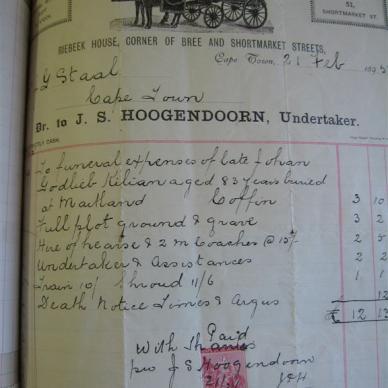 51,
SHORTMARKET ST.
RIEBEEK HOUSE, CORNER OF BREE AND SHORTMARKET STREETS,
Cape Town, 21 Feb 189
G Staal
Cape Town
Dr. to J. S. HOOGENDOORN, Undertaker.
To funeral expenses of late Johan
Godlieb Kilian aged 83 years buried
at Maitland Coffin 3 10
Full plot ground & grave 3 2
Hire of hearse & 2 m Coaches @ 15/- 2 5
Undertaker & Assistances 2
Train 10/ Shroud 11/6 1
Death Notice Times & Argus 12
£ 12 13
Paid
With Thanks
pro J S Hoogendoorn
JSH